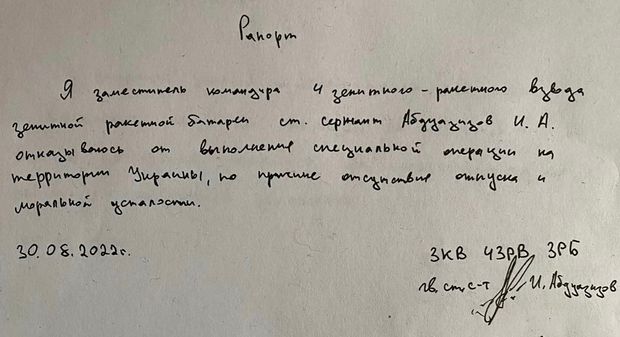 Рапорт
Я заместитель командира 4 зенитного-ракетного взвода
зенитной ракетной батареи ст. сержант Абдуазизов И. А.
отказываюсь от выполнение специальной операции на
территории Украины, по причине отсутствие отпуска и
моральной усталости.
30.08.2022г. ЗКВ 4ЗРВ ЗРБ
гв. ст. с-т И. Абдуазизов